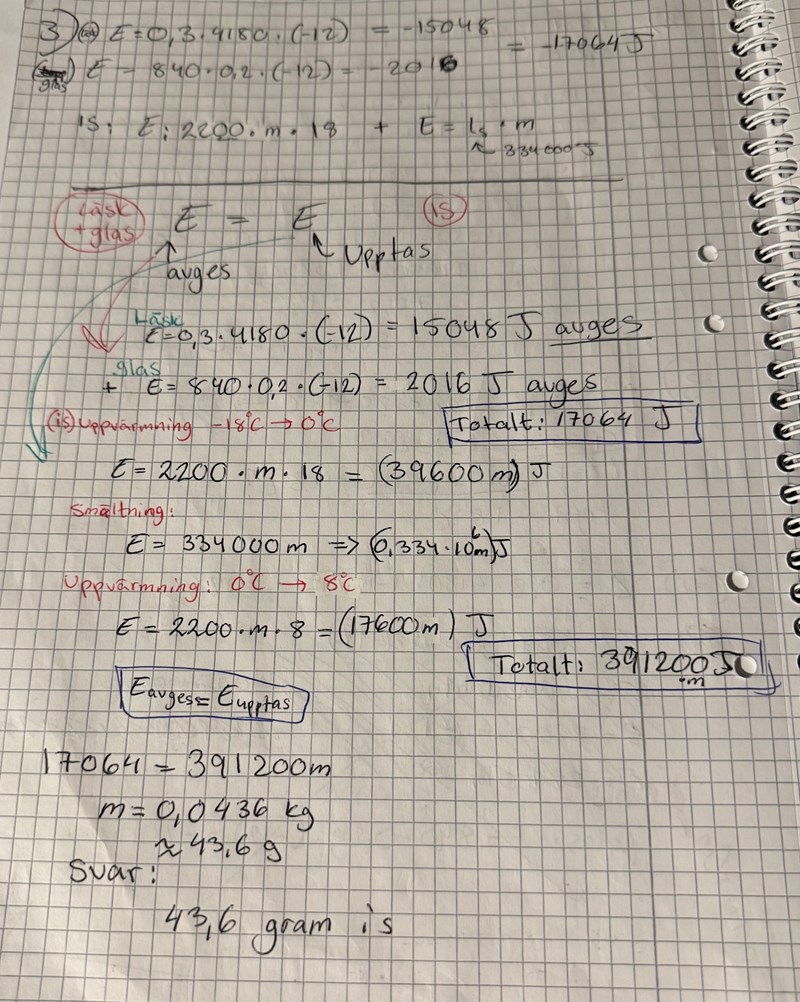 3) E = 0,3 · 4180 · (-12) = -15048 = -17064 J
glas) E = 840 · 0,2 · (-12) = -2016
is: E: 2200 · m · 18 + E = ls · m
↖ 334000 J
Läsk + glas E = E (is)
avges Upptas
Läsk
E = 0,3 · 4180 · (-12) = 15048 J avges
glas
+ E = 840 · 0,2 · (-12) = 2016 J avges
(is) Uppvärmning -18°C → 0°C Totalt: 17064 J
E = 2200 · m · 18 = (39600m) J
Smältning:
E = 334000m => (0,334 · 10⁶m) J
Uppvärmning: 0°C → 8°C
E = 2200 · m · 8 = (17600m) J
Totalt: 391200 J
· m
Eavges = Eupptas
17064 = 391200m
m = 0,0436 kg
≈ 43,6 g
Svar:
43,6 gram is